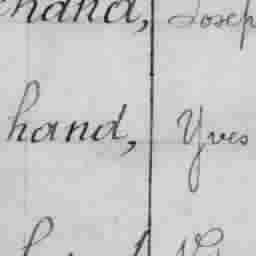 hand, Josep
hand, Yves